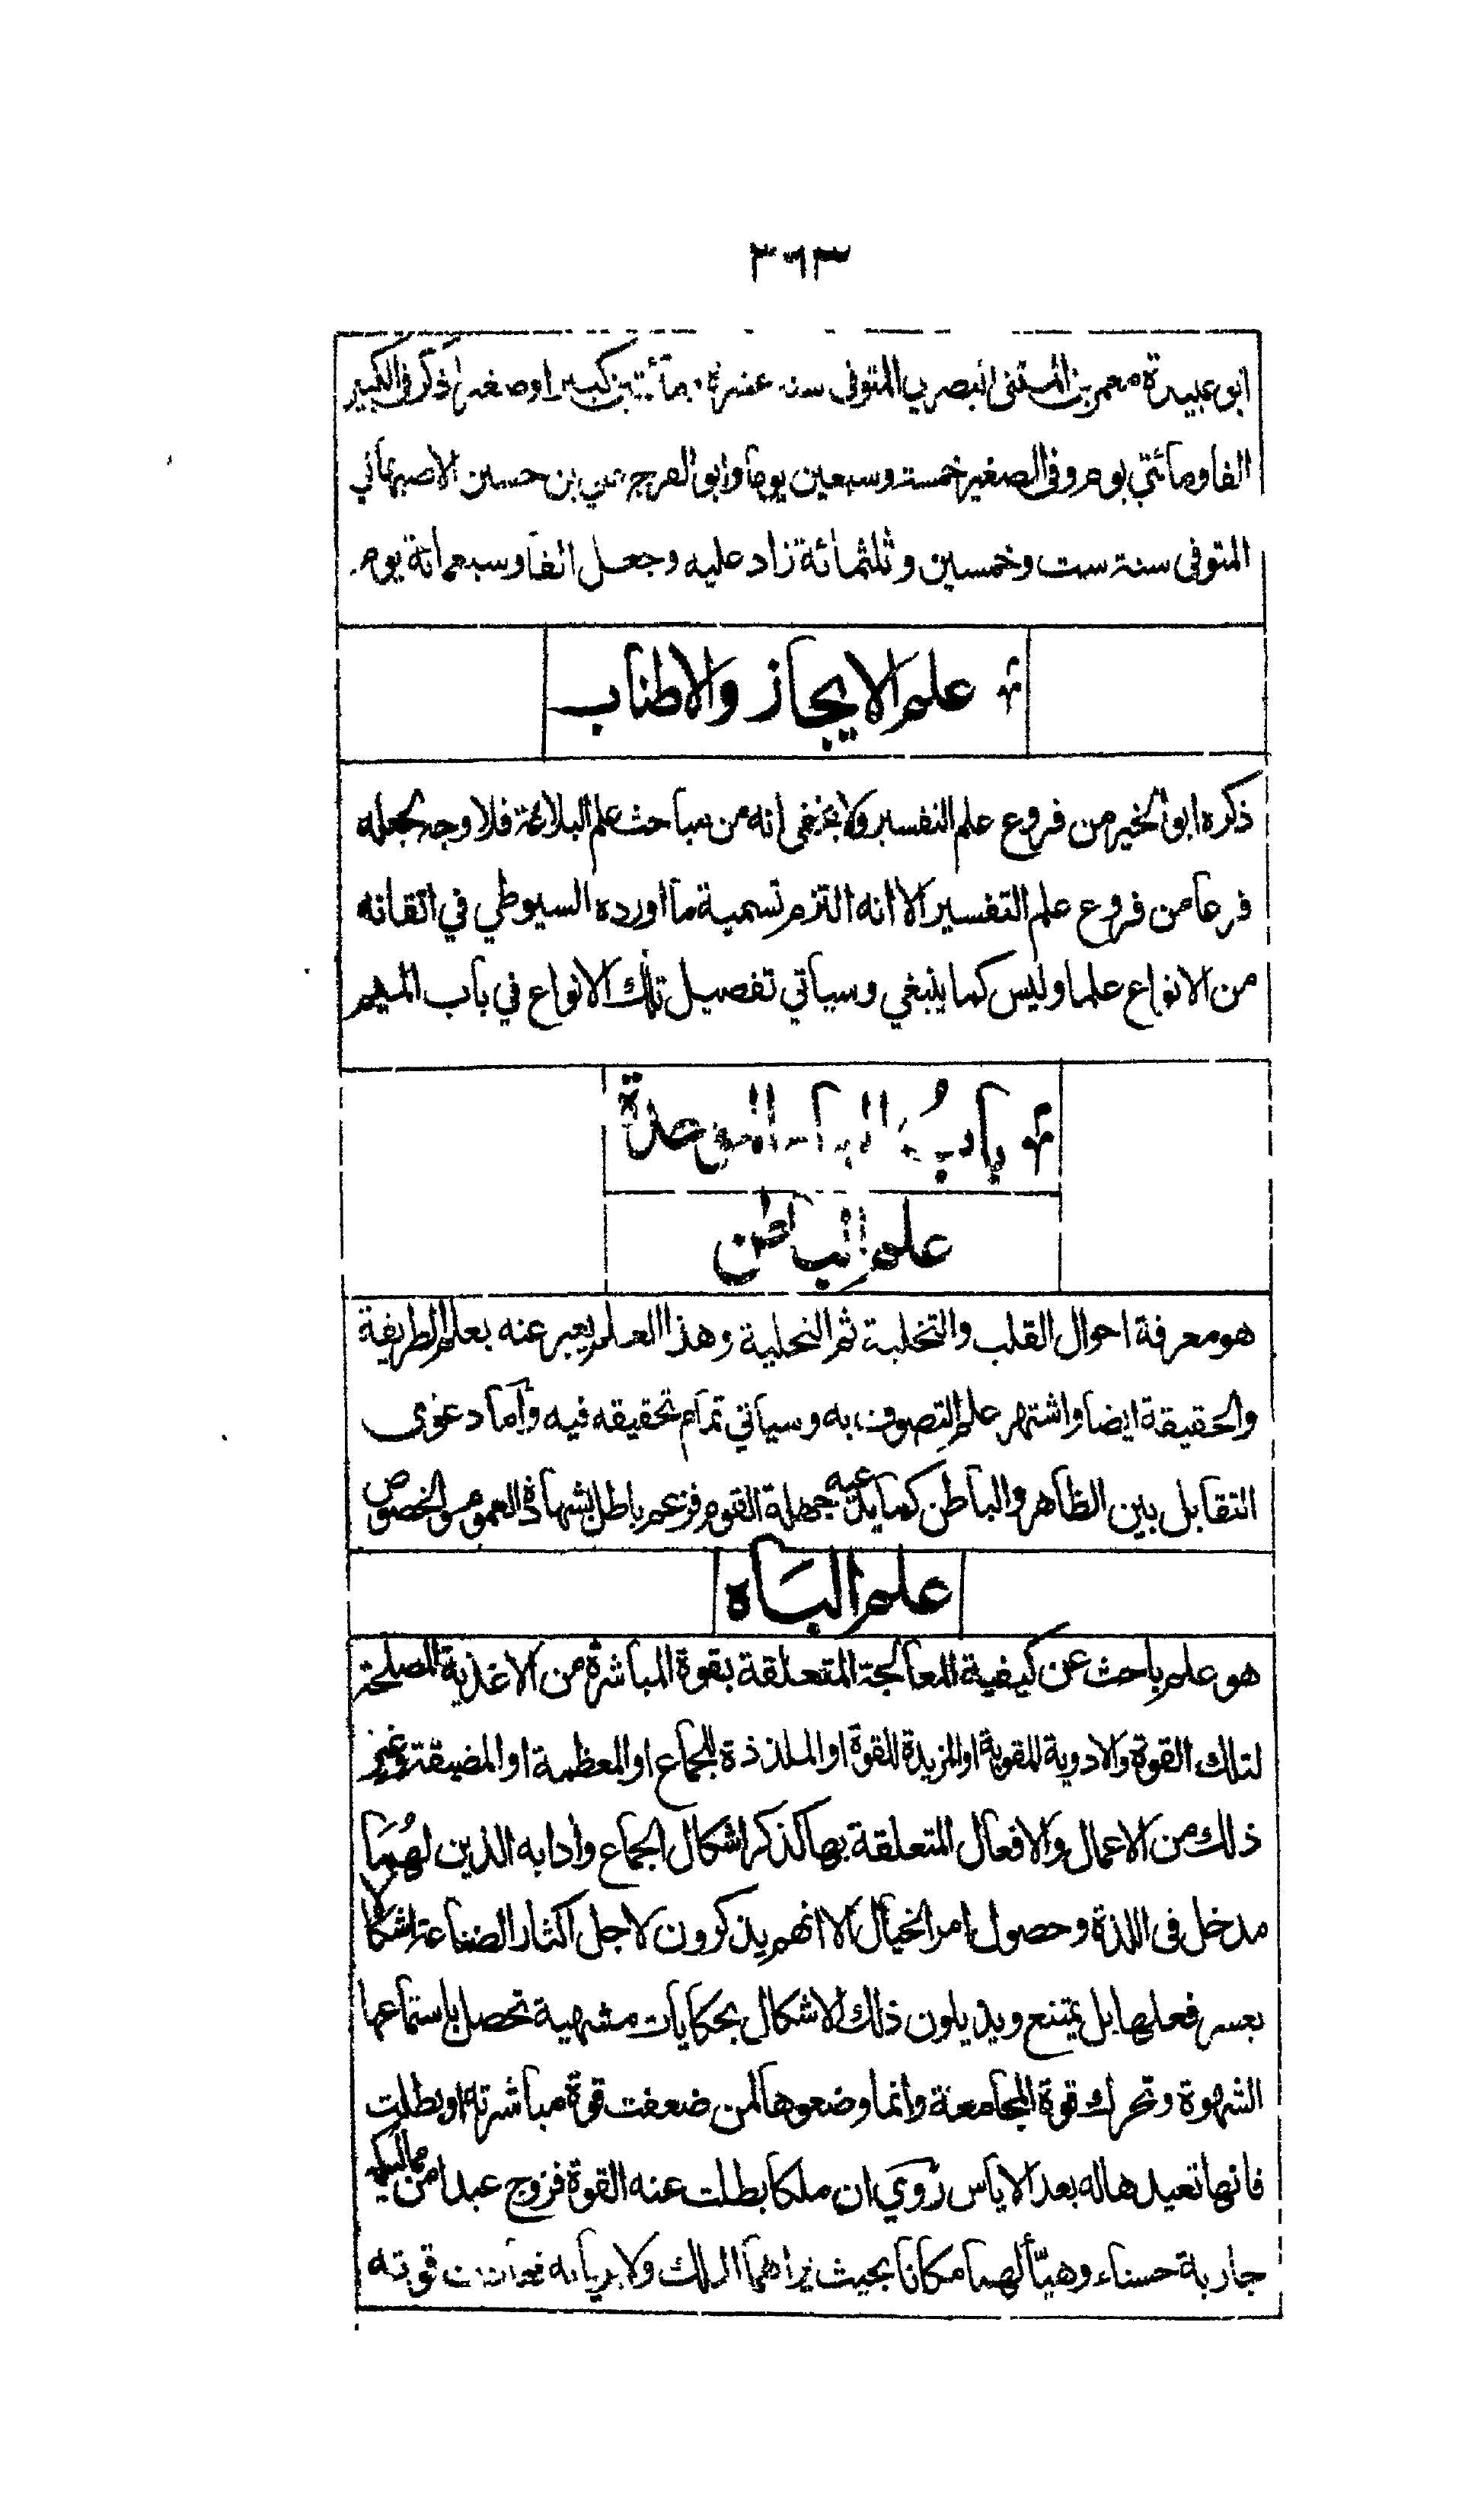 ٣٦٣
ابو عبيدة معمر بن المثنى البصري المتوفى سنة عشرة ومائتين كبيرا وصغيرا ذكر فى الكبير
الفا ومائتي يوم وفى الصغير خمسة وسبعين يوما وابو الفرج علي بن حسين الاصبهاني
المتوفى سنة ست وخمسين وثلثمائة زاد عليه وجعل الفا وسبعمائة يوم
علم الايجاز والاطناب
ذكره ابو الخير من فروع علم التفسير ولا يخفى انه من مباحث علم البلاغة فلا وجه لجعله
فرعا من فروع علم التفسير الا انه التزم تسمية ما اورده السيوطي في اتقانه
من الانواع علما وليس كما ينبغي وسياتي تفصيل تلك الانواع في باب الميم
باب الباء الموحدة
علم الباطن
هو معرفة احوال القلب والتخلية ثم التحلية وهذا العلم يعبر عنه بعلم الطريقة
والحقيقة ايضا واشتهر علم التصوف به وسياتي تمام تحقيقه فيه واما دعوى
التقابل بين الظاهر والباطن كما يدعيه جهلة القوم فزعم باطل بشهادة العموم والخصوص
علم الباه
هو علم باحث عن كيفية المعالجة المتعلقة بقوة المباشرة من الاغذية المصلحة
لتلك القوة والادوية المقوية او المزيدة للقوة او الملذذة للجماع او المعظمة او المضيقة وغير
ذلك من الاعمال والافعال المتعلقة بها كذكر اشكال الجماع وادابه الذين لهما
مدخل فى اللذة وحصول امر الخيال الا انهم يذكرون لاجل اكثار الصناعة اشكالا
يعسر فعلها بل يمتنع ويذيلون ذلك الاشكال بحكايات مشهية تحصل باستماعها
الشهوة وتحرك قوة المجامعة وانما وضعوها لمن ضعفت قوة مباشرته او بطلت
فانها تعيدها له بعد الاياس روي ان ملكا بطلت عنه القوة فزوج عبدا من مماليكه
جارية حسناء وهيّأ لهما مكانا بحيث يراهما الملك ولا يريانه فعادت قوته